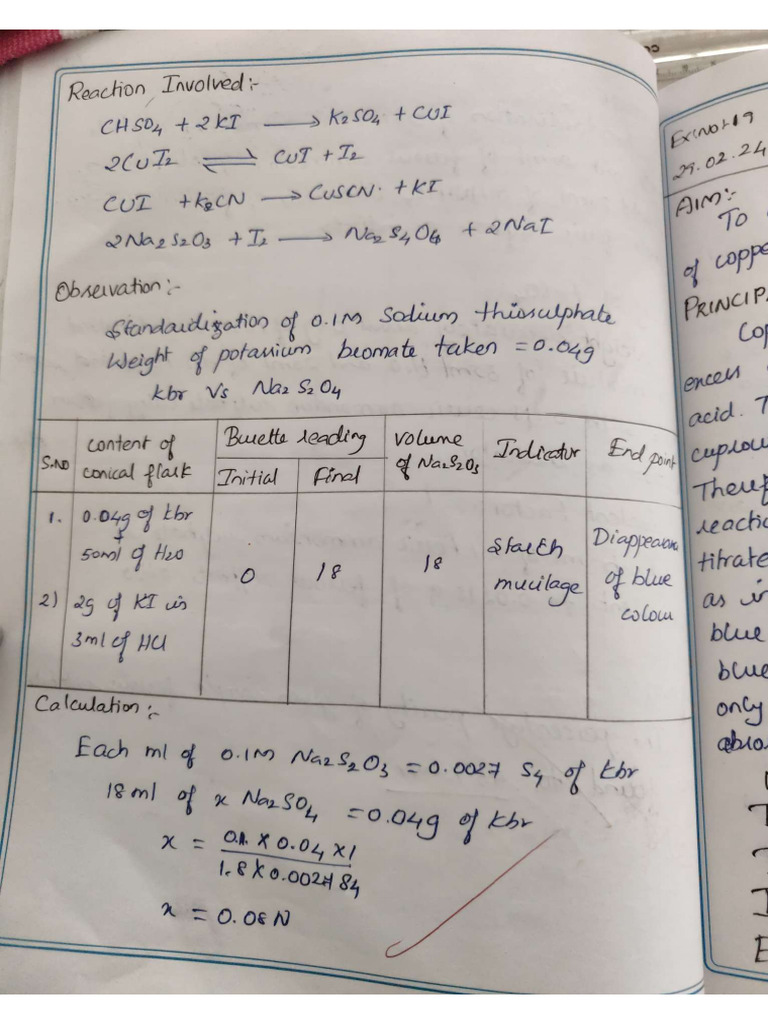 Reaction Involved:-
CHSO4 + 2KI ⟶ K2SO4 + CUI
2CUI2 ⇌ CUI + I2
CUI + K2CN ⟶ CUSCN + KI
2Na2S2O3 + I2 ⟶ Na2S4O6 + 2NaI
Observation:-
Standardization of 0.1M Sodium thiosulphate
Weight of potassium bromate taken = 0.04g
kbr Vs Na2 S2O4
S.NO
content of conical flask
Burette reading
Initial
Final
Volume of Na2S2O3
Indicator
End point
1. 0.04g of kbr
+
50ml of H2O
2) 2g of KI in
3ml of HCl
0
18
18
Starch
mucilage
Diappearance
of blue
colour
Calculation:-
Each ml of 0.1M Na2S2O3 = 0.0027 S4 of kbr
18ml of x Na2SO4 = 0.04g of kbr
x = 0.1 X 0.04 X1
1.8 X 0.002784
x = 0.08N
Ex:No:19
29.02.24
AIM:-
To
of coppe
PRINCIPA
Cop
excess
acid. T
cuprou
Theref
reactio
titrate
as in
blue
blue
only